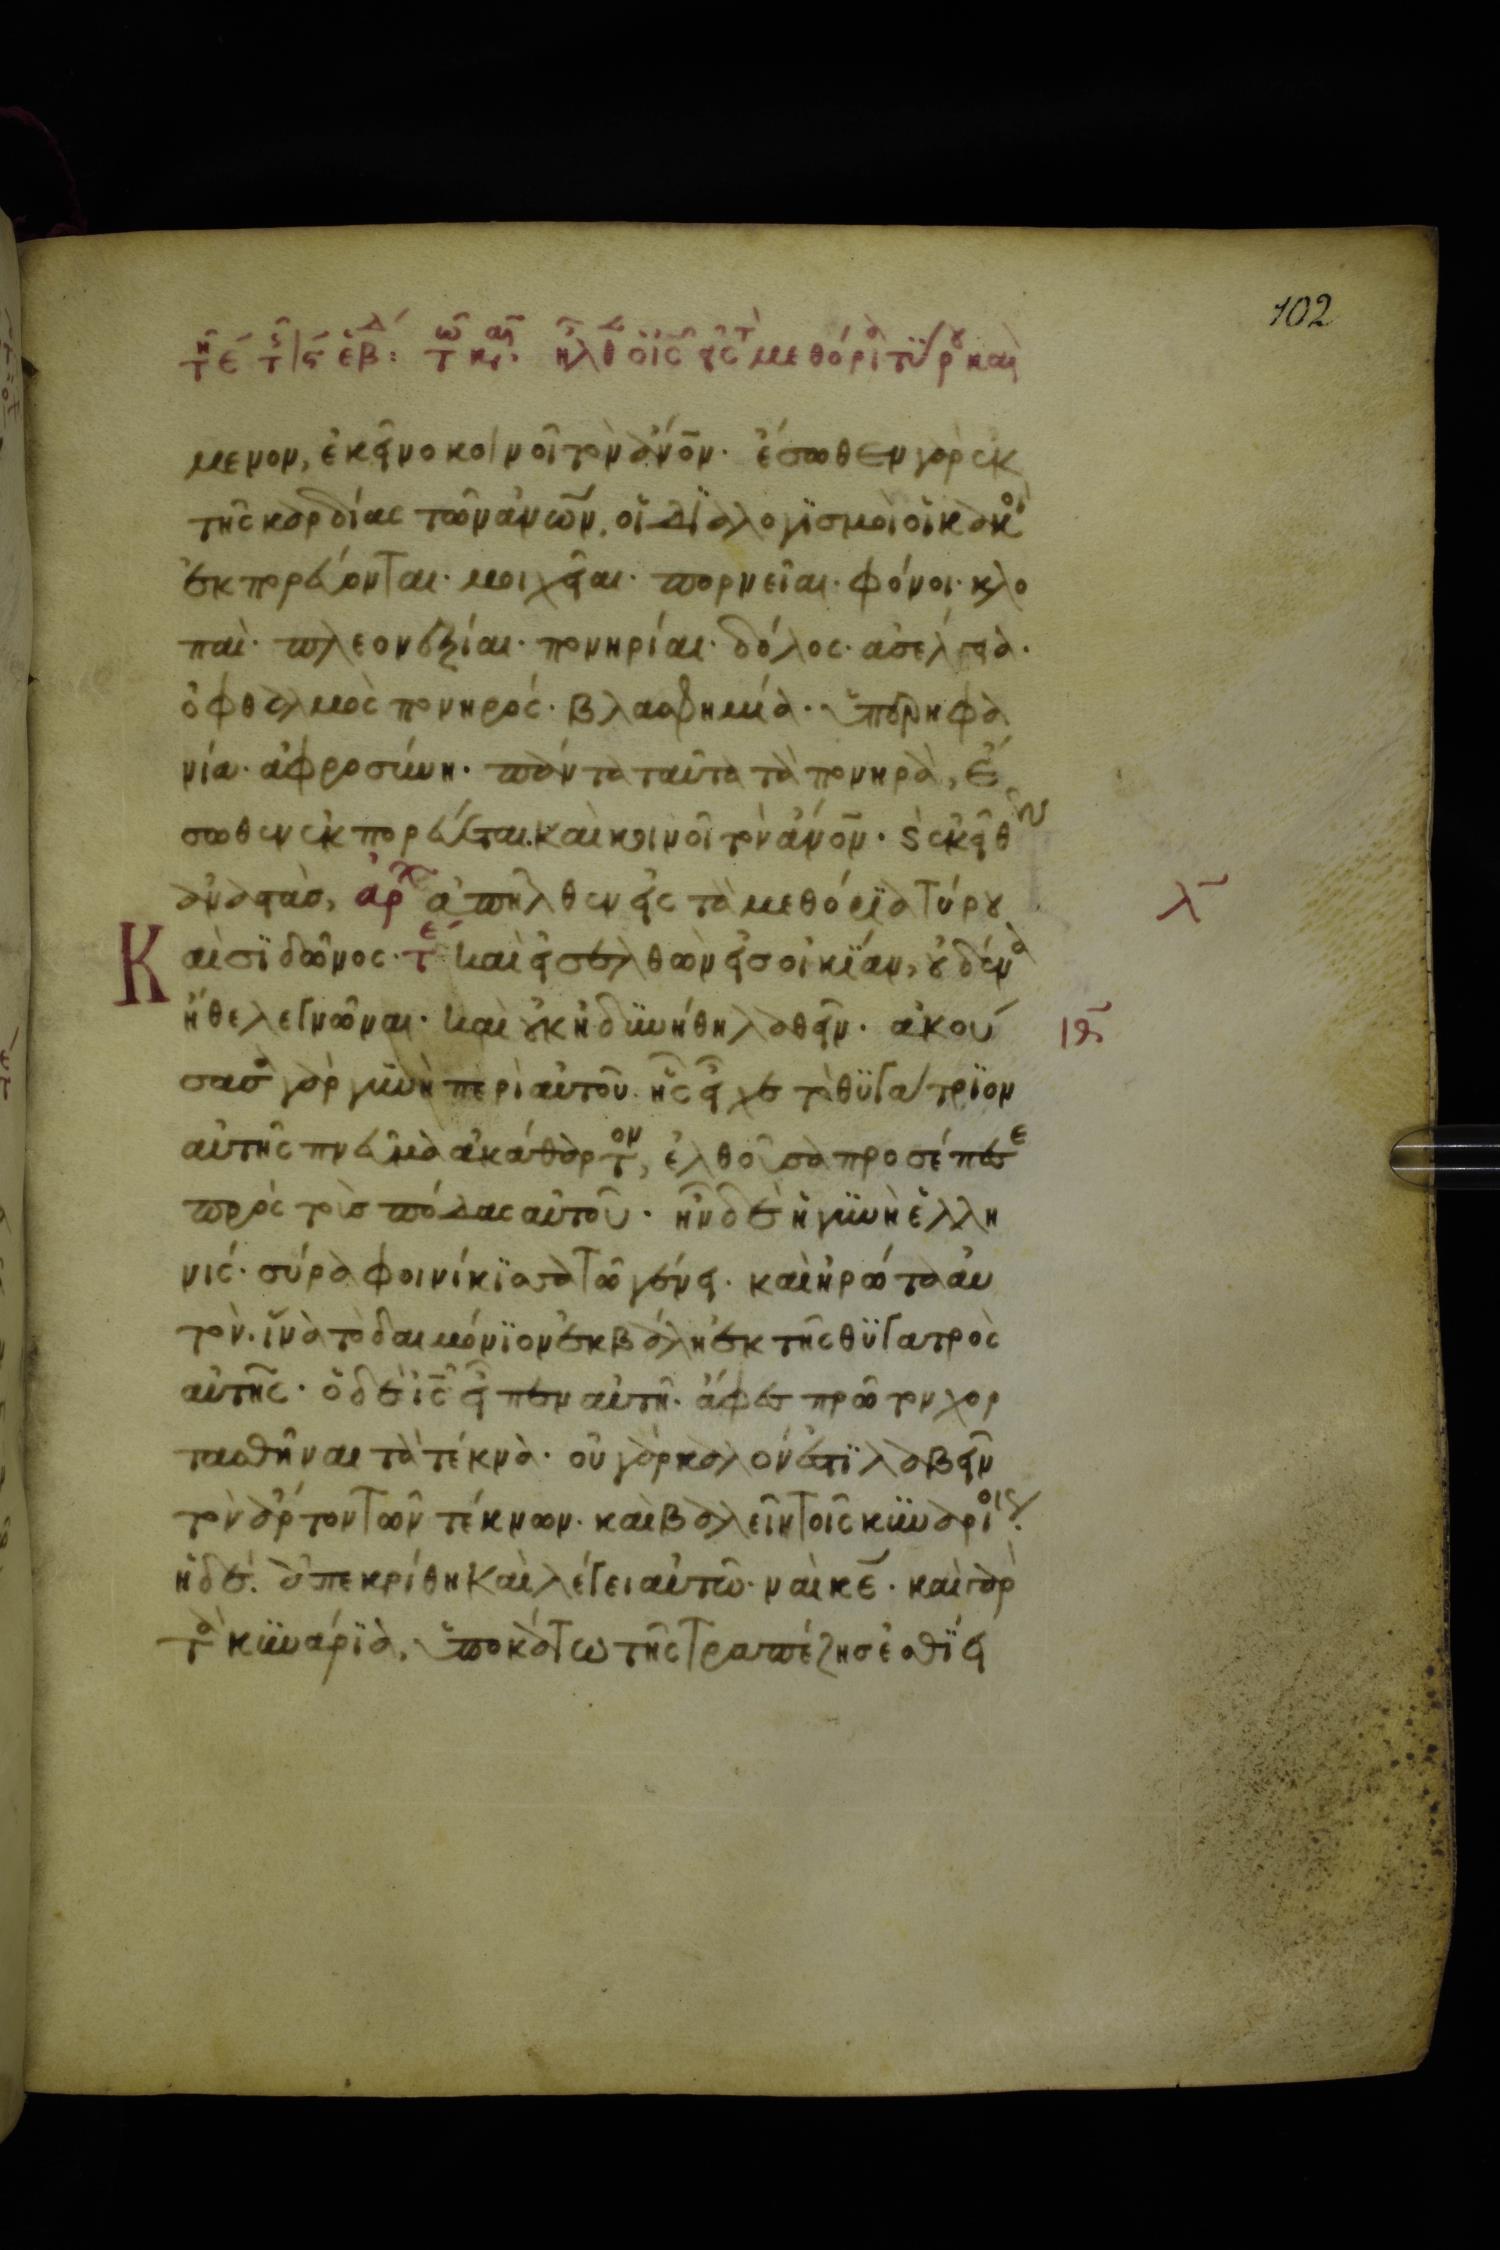 102
τῇ ε τς ις ἑβδ: τῷ καιρ· ἦλθ ὁ ις εἰς τ μεθόρια τύρου καὶ
μενον, ἐκεῖνο κοινοῖ τὸν ἄνον· ἔσωθεν γὰρ ἐκ
τῆς καρδίας τῶν ἀνων, οἱ διαλογισμοὶ οἱ κακοὶ
ἐκπορεύονται· μοιχεῖαι· πορνεῖαι· φόνοι· κλο
παὶ· πλεονεξίαι· πονηρίαι· δόλος· ἀσέλγεια·
ὀφθαλμὸς πονηρός· βλασφημία· ὑπερηφα
νία· ἀφροσύνη· πάντα ταῦτα τὰ πονηρὰ, ἔ
σωθεν ἐκπορεύεται καὶ κοινοῖ τὸν ἄνον· ϛ ἐκεῖθεν
ἀναστὰσ, ἀρχ ἀπῆλθεν εἰς τὰ μεθόρϊα τύρου
λ
Καὶ σϊδῶνος· τε καὶ εἰσελθὼν εἰσ οἰκΐαν, οὐδένα
ἤθελε γνῶναι· καὶ οὐκ ἠδϋνήθη λαθεῖν· ἀκού
ιθ
σασα γὰρ γϋνὴ περὶ αὐτοῦ· ἧς εἶχε τὸ θϋγάτρϊον
αὐτῆς πνεῦμα ἀκάθαρτον, ἐλθοῦσα προσέπεσε
πρὸς τοὺσ πόδας αὐτοῦ· ἦν δὲ ἡ γϋνὴ ἑλλη
νίς· σύρα φοινίκϊσσα τῶ γένει· καὶ ἠρώτα αὐ
τὸν· ἵνα τὸ δαιμόνϊον ἐκβάλη ἐκ τῆς θϋγατρὸς
αὐτῆς· ὁ δὲ ις εἶπεν αὐτῆ· ἄφες πρῶτον χορ
τασθῆναι τὰ τέκνα· οὐ γὰρ καλὸν ἐστϊ λαβεῖν
τὸν ἄρτον τῶν τέκνων· καὶ βαλεῖν τοῖς κϋναρίοις·
ἡ δὲ· ἀπεκρίθη καὶ λέγει αὐτῶ· ναὶ κε· καὶ γὰρ
τὰ κϋνάρϊα, ὑποκάτω τῆς τραπέζησ ἐσθΐει